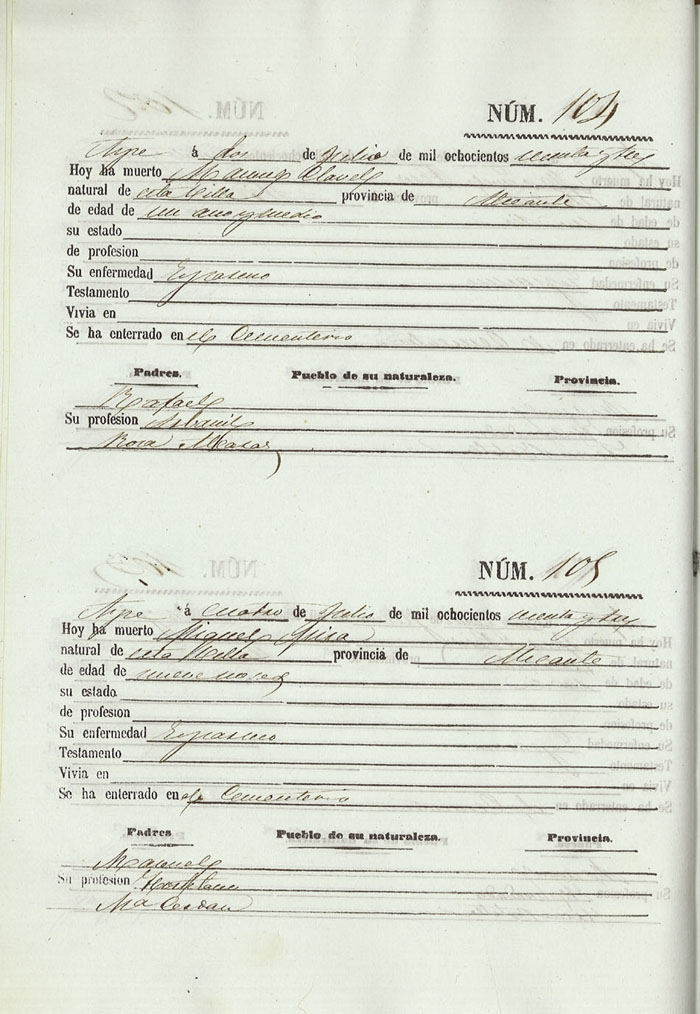 NÚM. 104
Aspe á dos de Julio de mil ochocientos
Hoy ha muerto Clavel
natural de esta Villa provincia de Alicante
de edad de un año y medio
su estado
de profesion
Su enfermedad Espasmo
Testamento
Vivia en
Se ha enterrado en el Cementerio
Padres. Pueblo de su naturaleza. Provincia.
Rafael
Su profesion Albañil
Rosa
NÚM. 105
Aspe á cuatro de Julio de mil ochocientos
Hoy ha muerto Miguel Mira
natural de esta Villa provincia de Alicante
de edad de nueve meses
su estado
de profesion
Su enfermedad Espasmo
Testamento
Vivia en
Se ha enterrado en el Cementerio
Padres Pueblo de su naturaleza. Provincia.
Manuel
Su profesion
Ma Cerdan